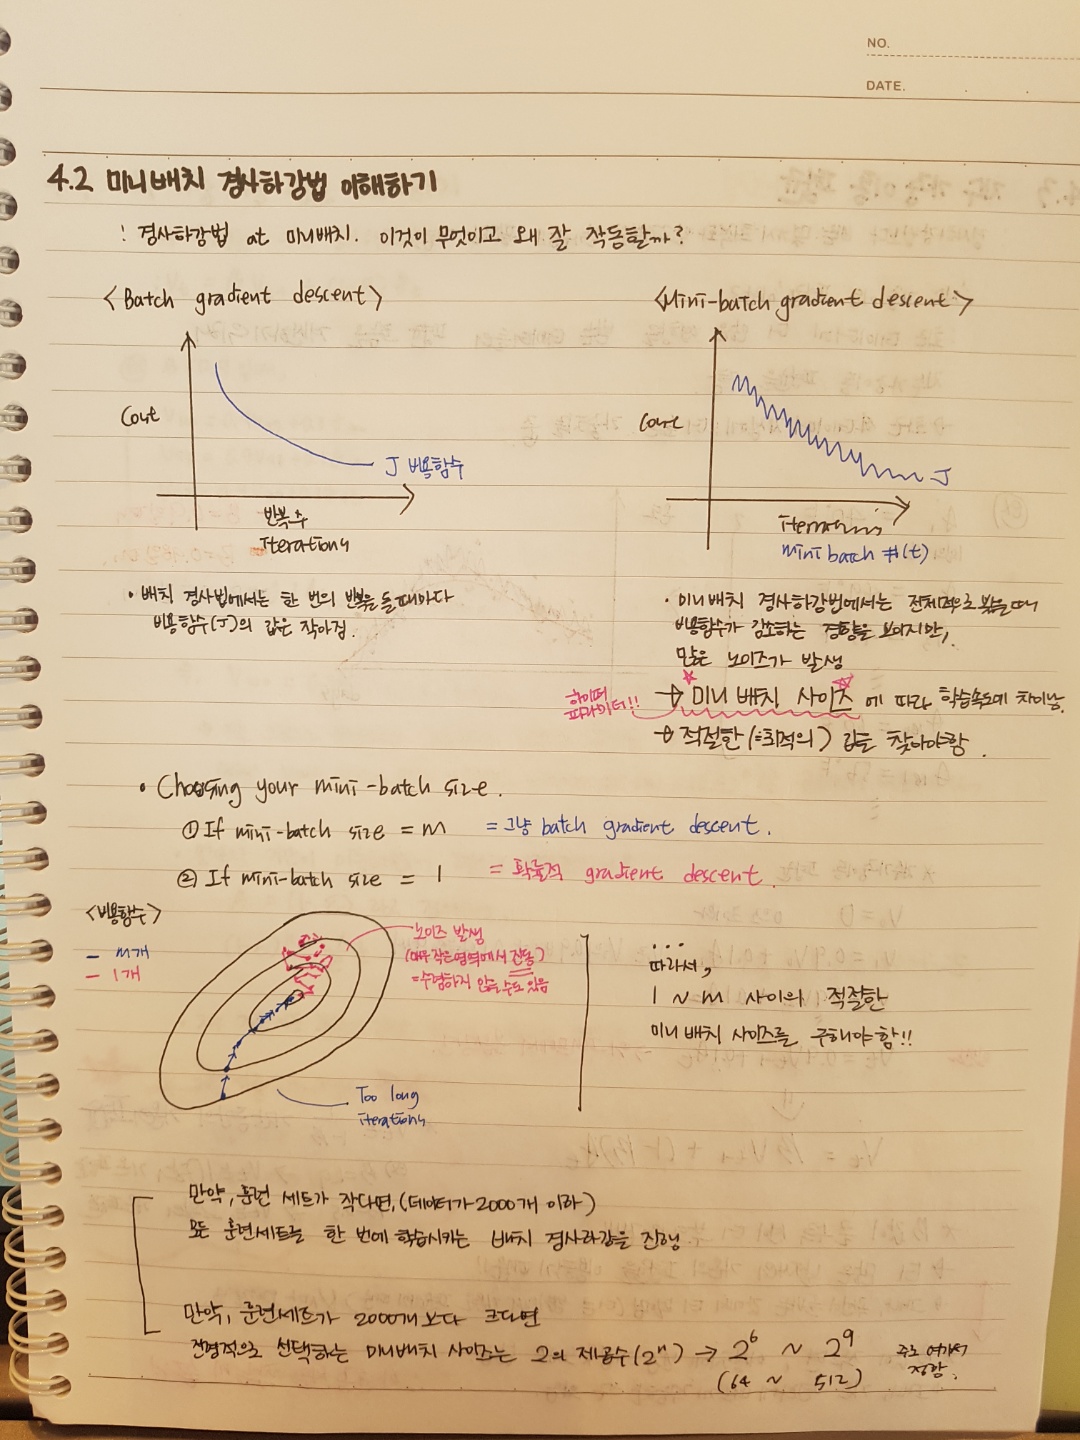 NO.
DATE.
4.2 미니배치 경사하강법 이해하기
! 경사하강법 at 미니배치. 이것이 무엇이고 왜 잘 작동할까?
<Batch gradient descent>
Cost
J 비용함수
반복수
Iterations
• 배치 경사법에서는 한 번의 반복을 돌 때마다
비용함수(J)의 값은 작아짐.
<Mini-batch gradient descent>
Cost
J
iterations
mini batch #(t)
• 미니배치 경사하강법에서는 전체적으로 봤을때
비용함수가 감소하는 경향을 보이지만,
많은 노이즈가 발생
하이퍼
파라미터!!
→ 미니 배치 사이즈 에 따라 학습속도에 차이남.
→ 적절한(=최적의) 값을 찾아야함.
• Choosing your mini-batch size.
① If mini-batch size = m = 그냥 batch gradient descent.
② If mini-batch size = 1 = 확률적 gradient descent.
<비용함수>
— m개
— 1개
노이즈 발생
(매우 작은 영역에서 진동)
=수렴하지 않을 수도 있음
Too long
iterations
...
따라서,
1 ~ m 사이의 적절한
미니배치 사이즈를 구해야함!!
만약, 훈련 세트가 작다면, (데이터가 2000개 이하)
모든 훈련세트를 한 번에 학습시키는 배치 경사하강을 진행.
만약, 훈련세트가 2000개 보다 크다면
전형적으로 선택하는 미니배치 사이즈는 2의 제곱수(2ⁿ) → 2⁶ ~ 2⁹
(64 ~ 512)
주로 여기서
정함.